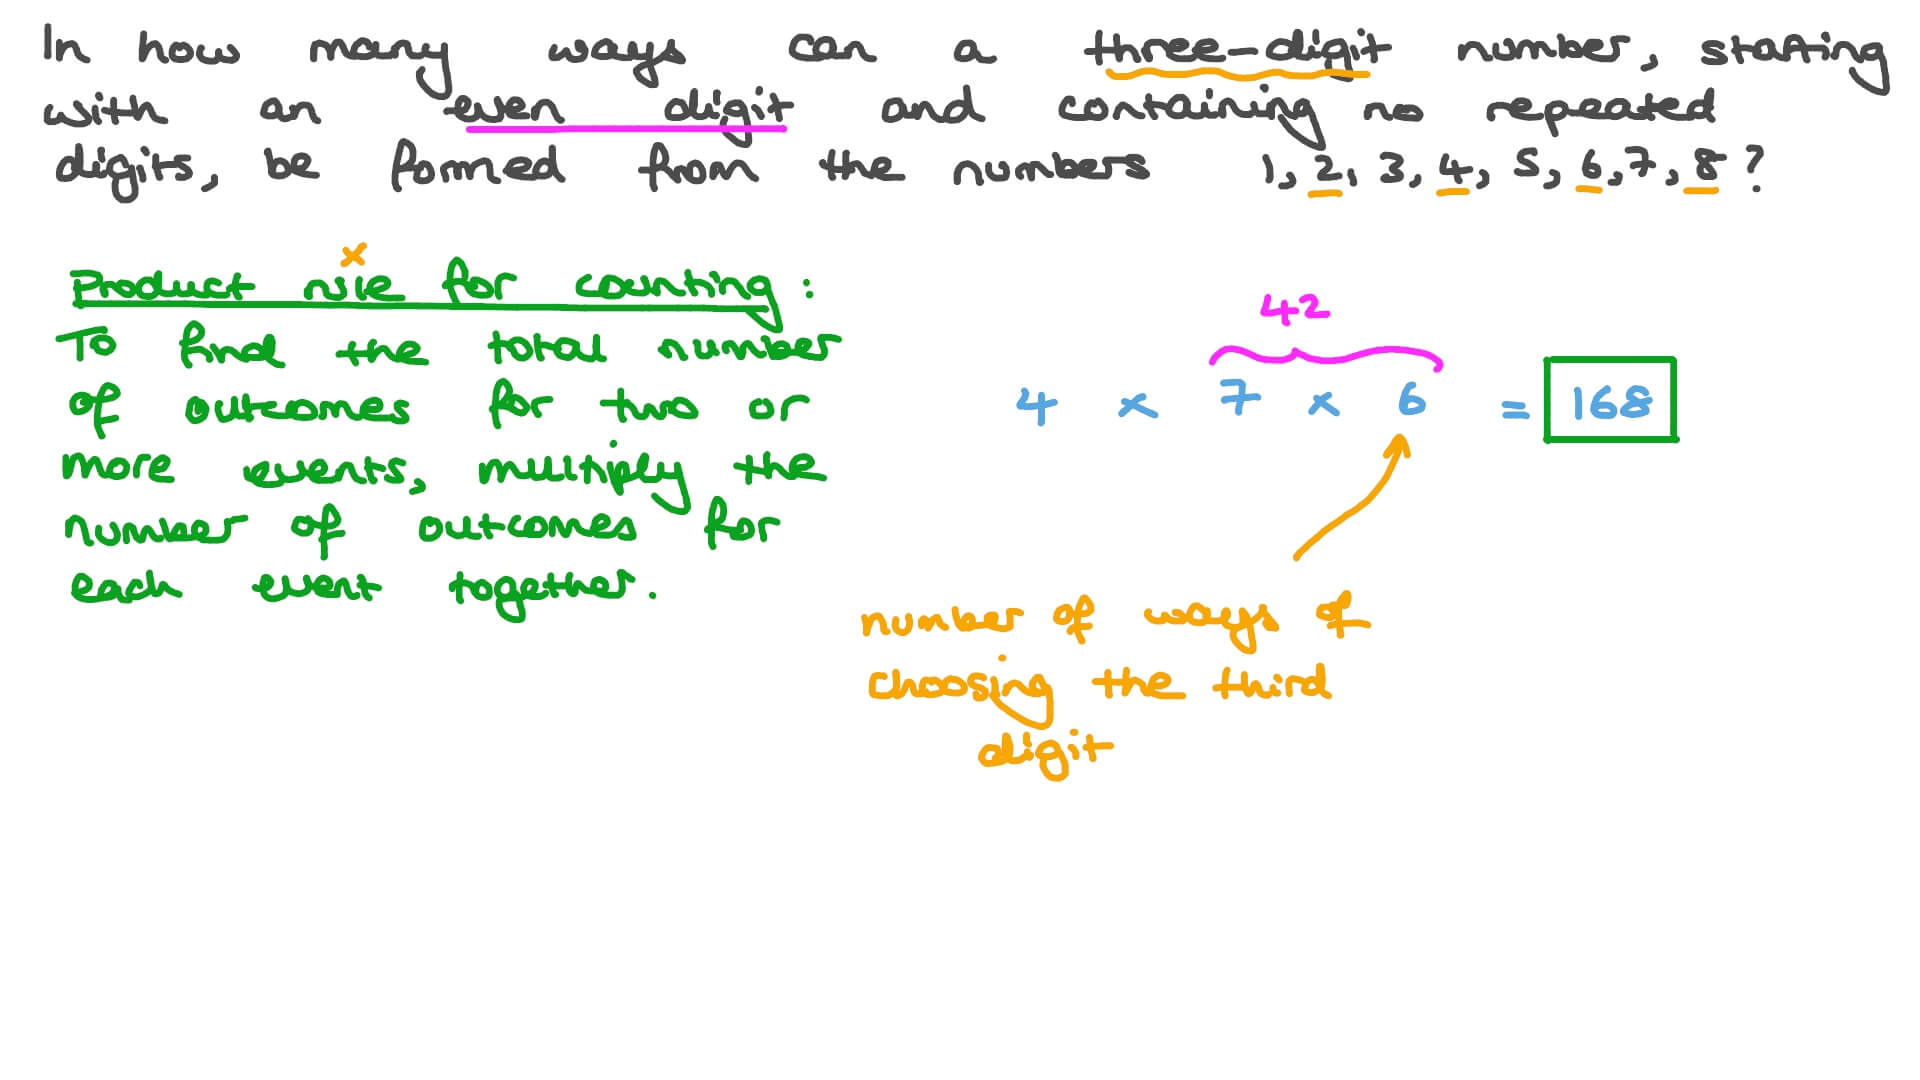 In how many ways can a three-digit number, starting
with an even digit and containing no repeated
digits, be formed from the numbers 1, 2, 3, 4, 5, 6, 7, 8?
x
Product rule for counting:
To find the total number
of outcomes for two or
more events, multiply the
number of outcomes for
each event together.
42
4 x 7 x 6 = 168
number of ways of
choosing the third
digit